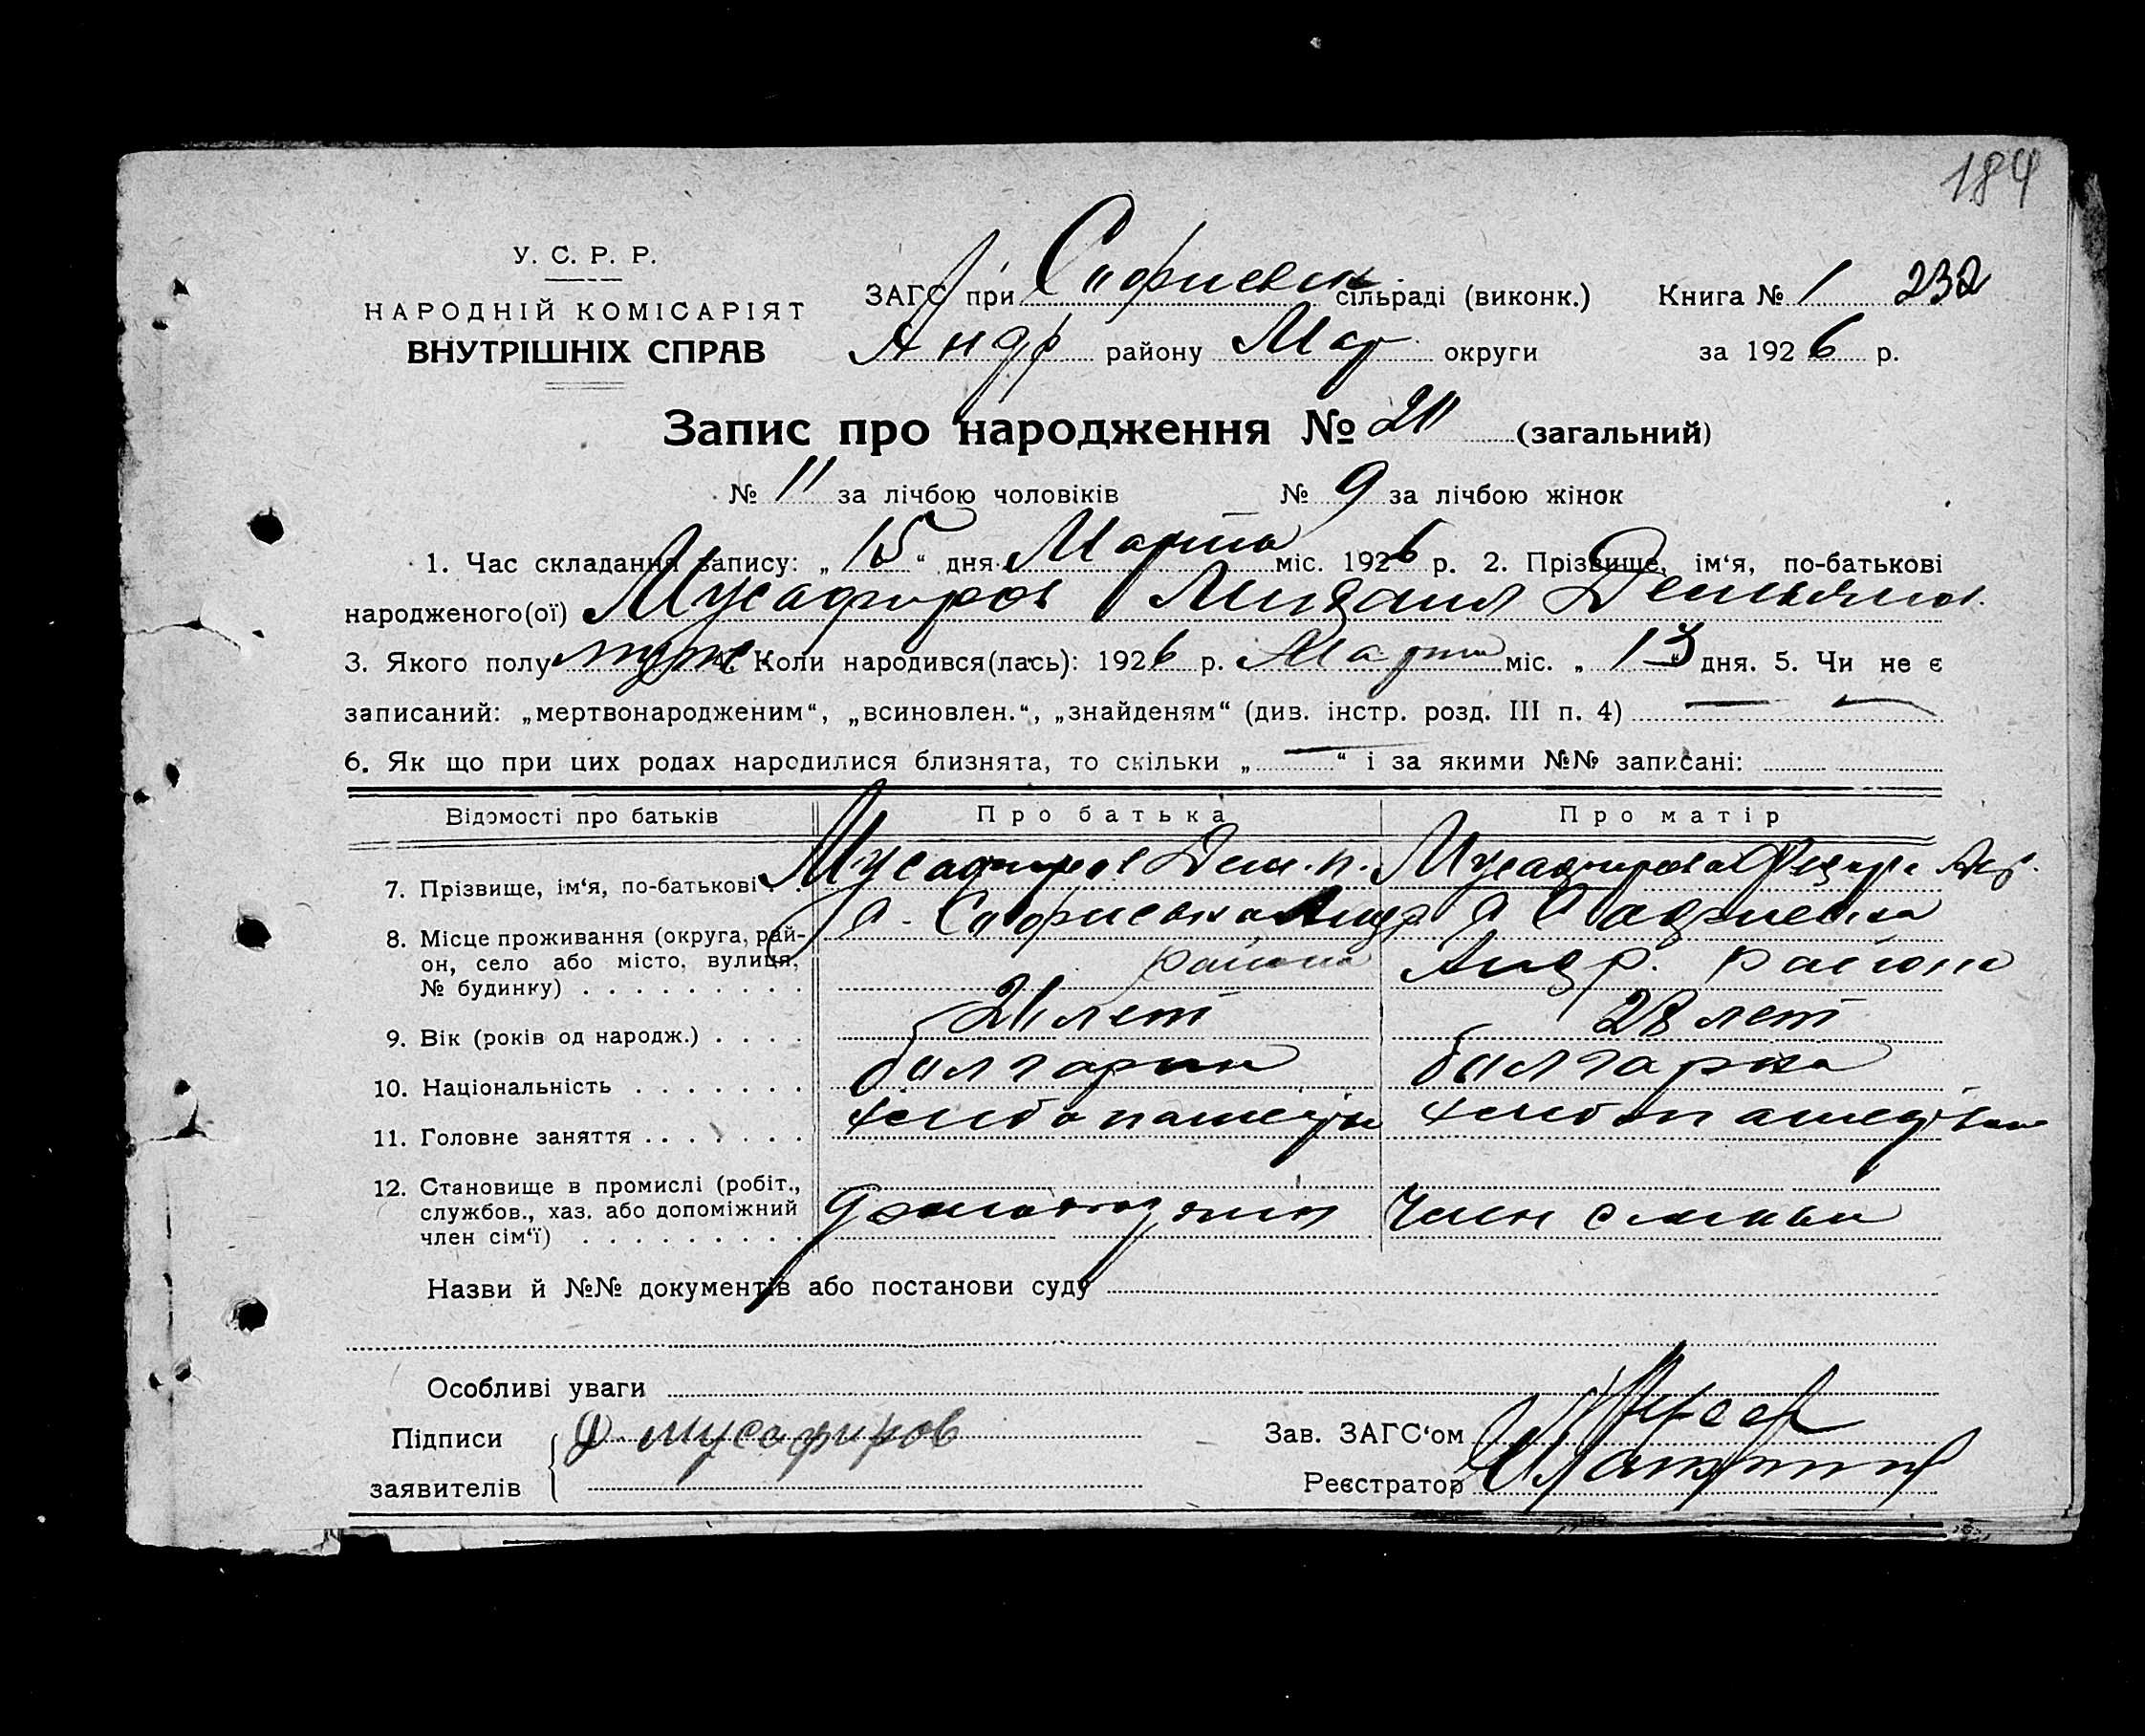 184
У. С. Р. Р.
НАРОДНІЙ КОМІСАРІЯТ
ВНУТРІШНІХ СПРАВ
ЗАГС при Софиевск сільраді (виконк.) Книга № 1 232
Андр району Мар округи за 1926 р.
Запис про народження № 20 (загальний)
№ 11 за лічбою чоловіків № 9 за лічбою жінок
1. Час складання запису: „ 15 “ дня Марта міс. 1926 р. 2. Прізвище, ім‘я, по-батькові
народженого(ої) Мусафиров Михаил Демьянов.
3. Якого полу муж. 4. Коли народився(лась): 1926 р. Марта міс. „ 13 “ дня. 5. Чи не є
записаний: „мертвонародженим“, „всиновлен.“, „знайденям“ (див. інстр. розд. III п. 4)
6. Як що при цих родах народилися близнята, то скільки „ “ і за якими №№ записані:
Відомості про батьків Про батька Про матір
7. Прізвище, ім‘я, по-батькові . . Мусафиров Дем. п. Мусафирова
8. Місце проживання (округа, рай- с. Софиевка Андр с Софиевка
он, село або місто, вулиця, района Андр. района
№ будинку) . . . . . . . . .
9. Вік (років од народж.) . . . . лет 28 лет
10. Національність . . . . . . . болгарин болгарка
11. Головне заняття . . . . . . .
12. Становище в промислі (робіт.,
службов., хаз. або допоміжний домохозяин Член семьи
член сім‘ї) . . . . . . . . .
Назви й №№ документів або постанови суду
Особливі уваги
Підписи Д. Мусафиров Зав. ЗАГС‘ом
заявителів Реєстратор